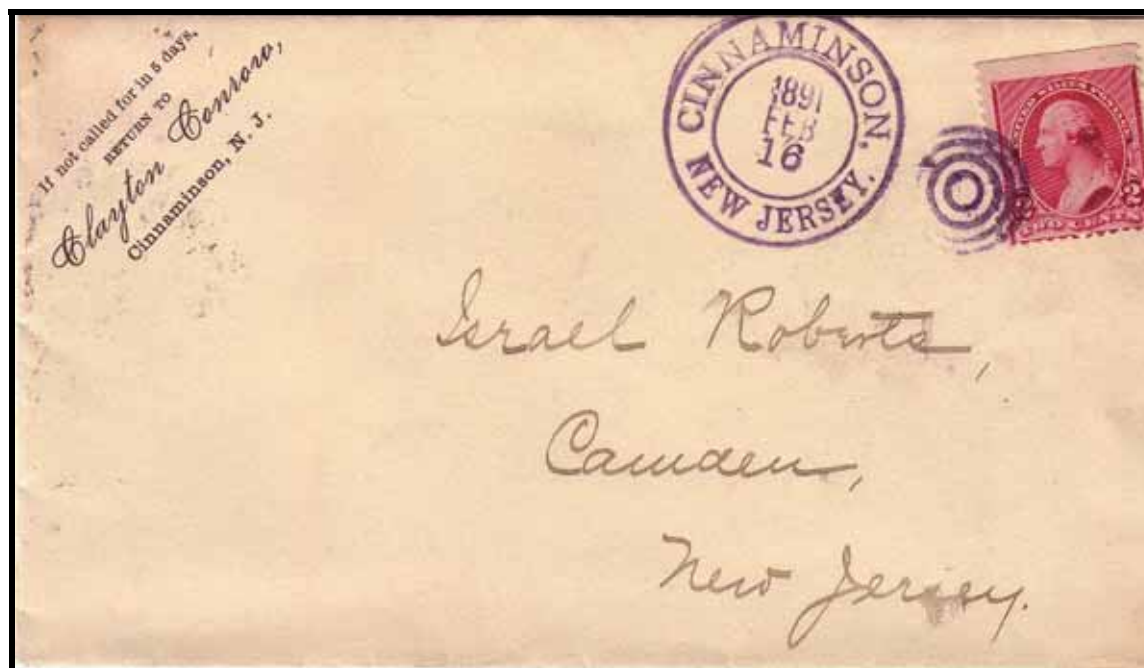 If not called for in 5 days,
RETURN TO
Clayton Conrow,
Cinnaminson, N. J.
CINNAMINSON,
NEW JERSEY.
1891
FEB
16
UNITED STATES POSTAGE
2 2
TWO CENTS
Israel Roberts,
Camden,
New Jersey.